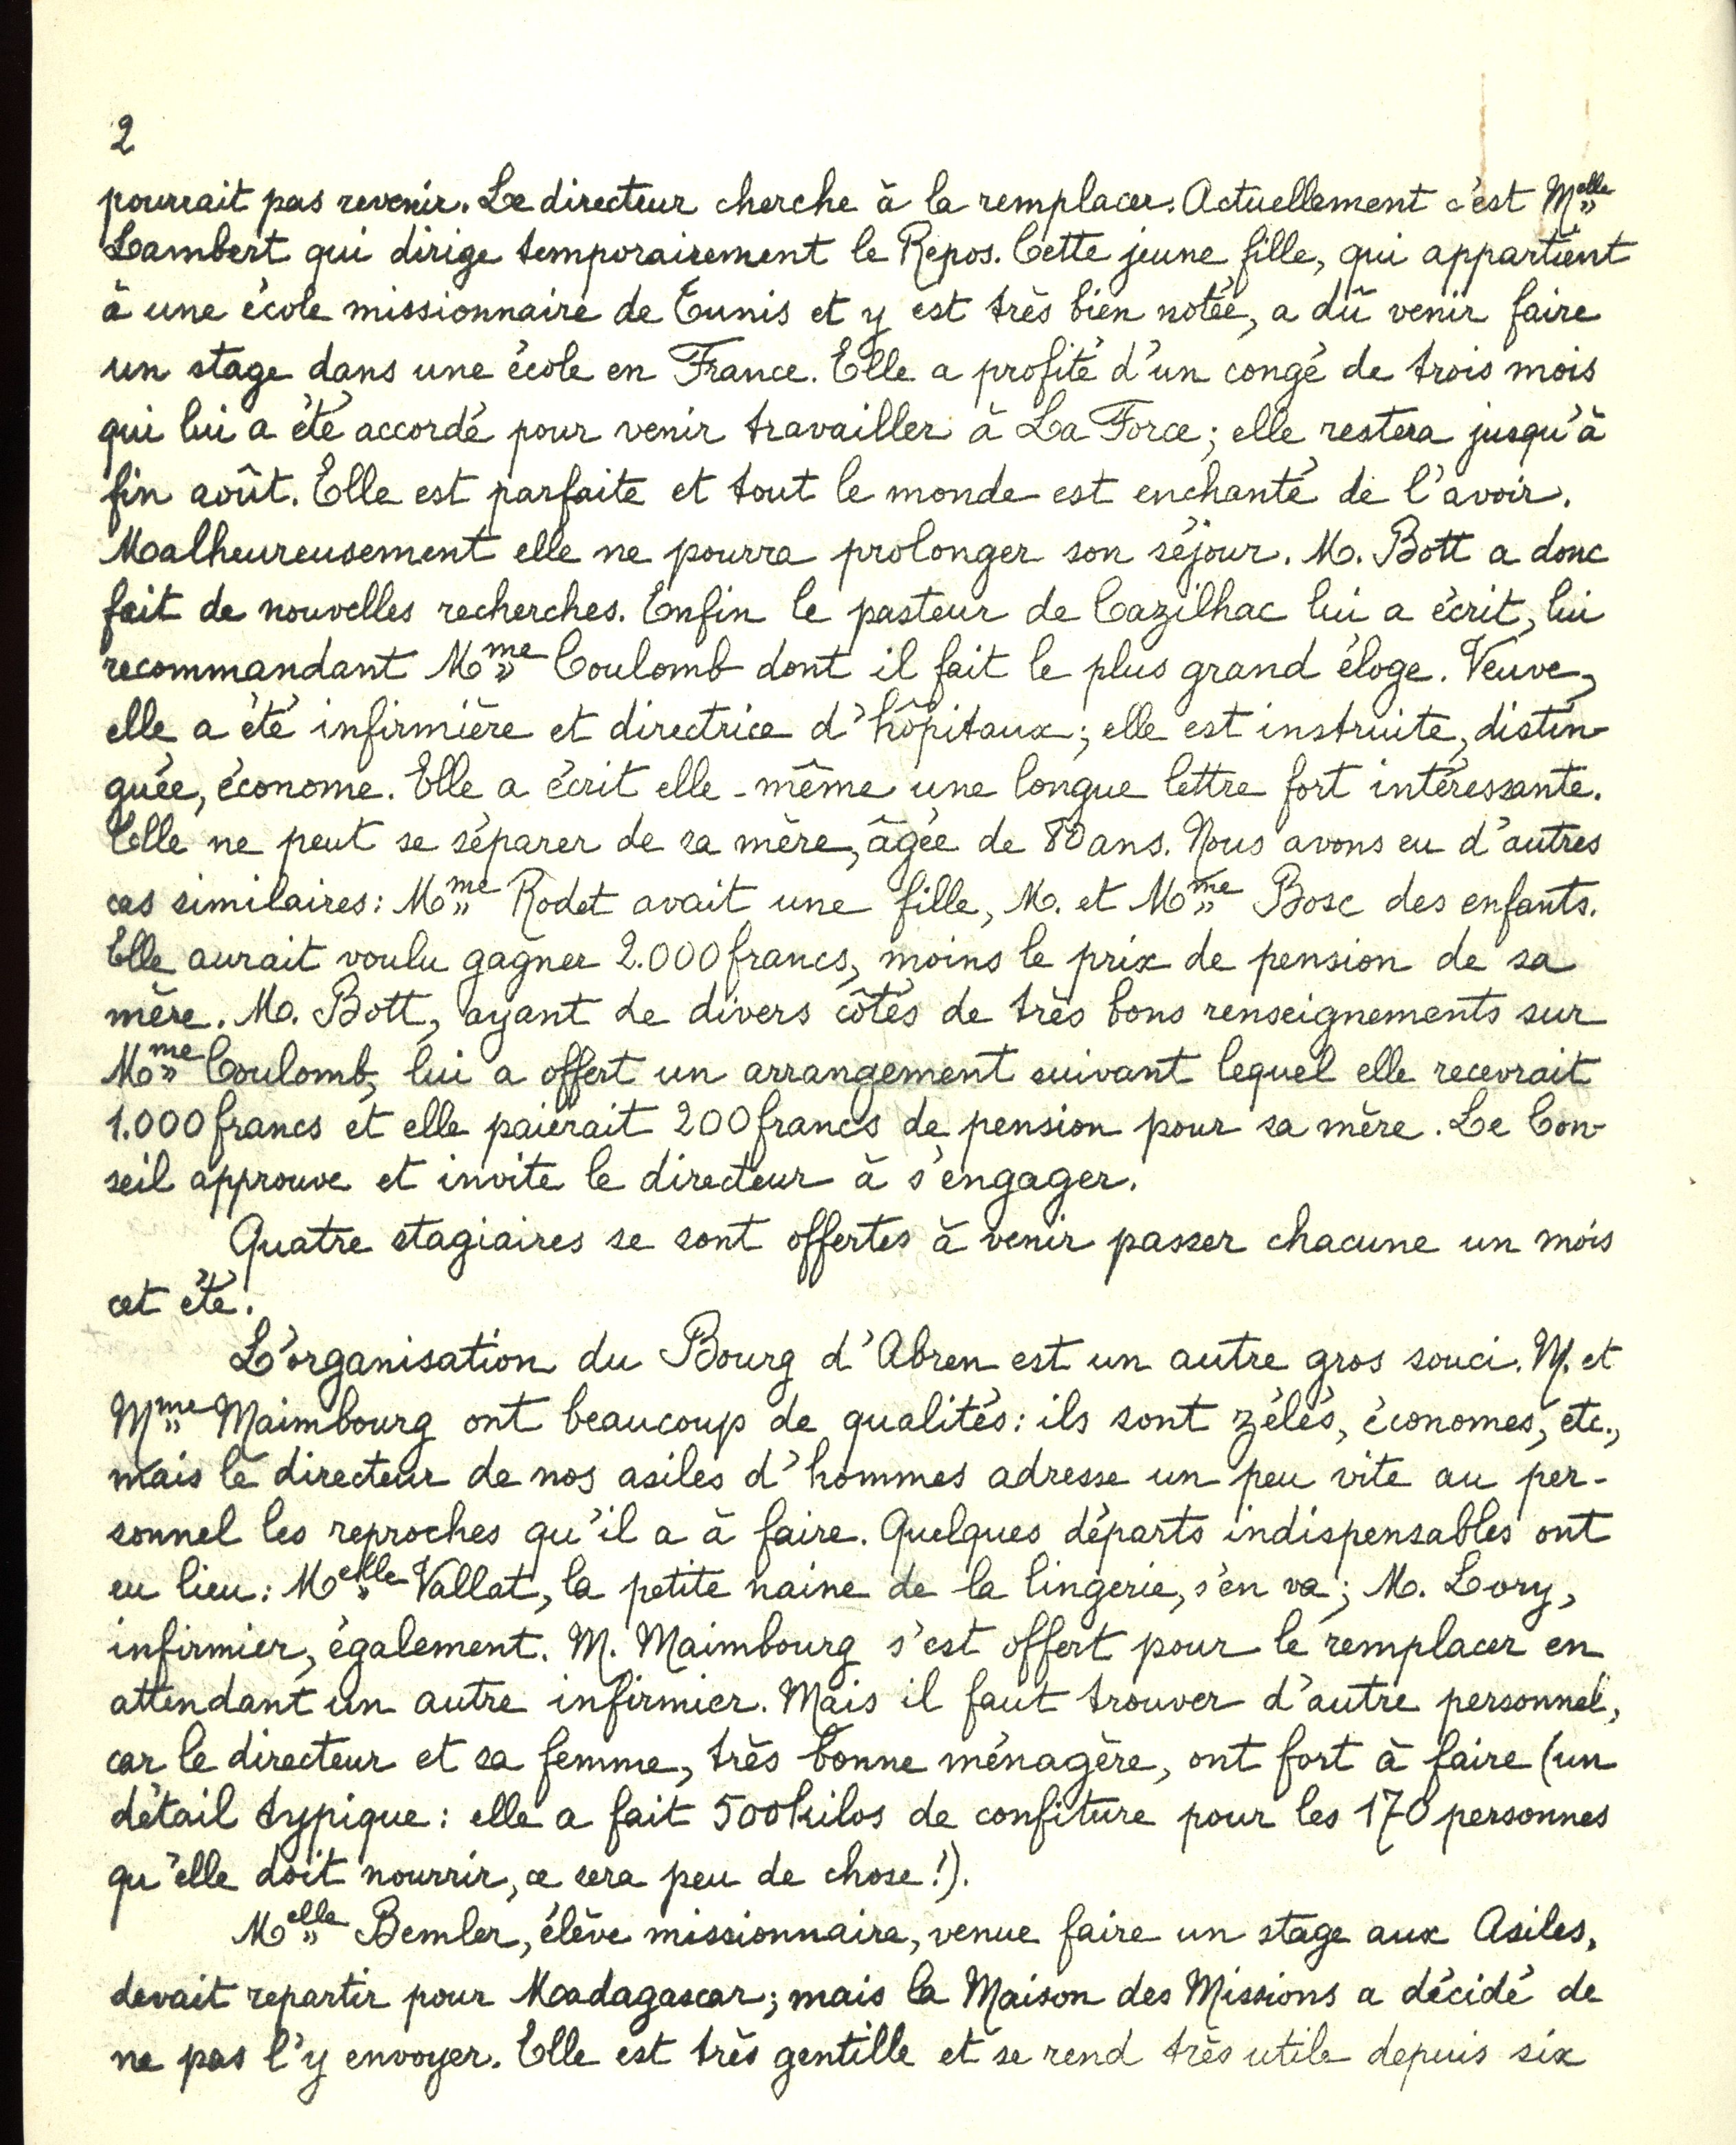 2
pourrait pas revenir. Le directeur cherche à la remplacer. Actuellement c'est Melle
Lambert qui dirige temporairement le Repos. Cette jeune fille, qui appartient
à une école missionnaire de Tunis et y est très bien notée, a dû venir faire
un stage dans une école en France. Elle a profité d'un congé de trois mois
qui lui a été accordé pour venir travailler à La Force; elle restera jusqu'à
fin août. Elle est parfaite et tout le monde est enchanté de l'avoir.
Malheureusement elle ne pourra prolonger son séjour. M. Bott a donc
fait de nouvelles recherches. Enfin le pasteur de Cazilhac lui a écrit, lui
recommandant Mme Coulomb dont il fait le plus grand éloge. Veuve,
elle a été infirmière et directrice d'hôpitaux; elle est instruite, distin-
guée, économe. Elle a écrit elle-même une longue lettre fort intéressante.
Elle ne peut se séparer de sa mère, âgée de 80 ans. Nous avons eu d'autres
cas similaires: Mme Rodet avait une fille, M. et Mme Bosc des enfants.
Elle aurait voulu gagner 2.000 francs, moins le prix de pension de sa
mère. M. Bott, ayant de divers côtés de très bons renseignements sur
Mme Coulomb, lui a offert un arrangement suivant lequel elle recevrait
1.000 francs et elle paierait 200 francs de pension pour sa mère. Le Con-
seil approuve et invite le directeur à s'engager.
Quatre stagiaires se sont offertes à venir passer chacune un mois
cet été.
L'organisation du Bourg d'Abren est un autre gros souci. M. et
Mme Maimbourg ont beaucoup de qualités: ils sont zélés, économes, etc.,
mais le directeur de nos asiles d'hommes adresse un peu vite au per-
sonnel les reproches qu'il a à faire. Quelques départs indispensables ont
eu lieu: Melle Vallat, la petite naine de la lingerie, s'en va; M. Lory,
infirmier, également. M. Maimbourg s'est offert pour le remplacer en
attendant un autre infirmier. Mais il faut trouver d'autre personnel,
car le directeur et sa femme, très bonne ménagère, ont fort à faire (un
détail typique: elle a fait 500 kilos de confiture pour les 170 personnes
qu'elle doit nourrir, ce sera peu de chose!).
Melle Bemler, élève missionnaire, venue faire un stage aux Asiles,
devait repartir pour Madagascar; mais la Maison des Missions a décidé de
ne pas l'y envoyer. Elle est très gentille et se rend très utile depuis six